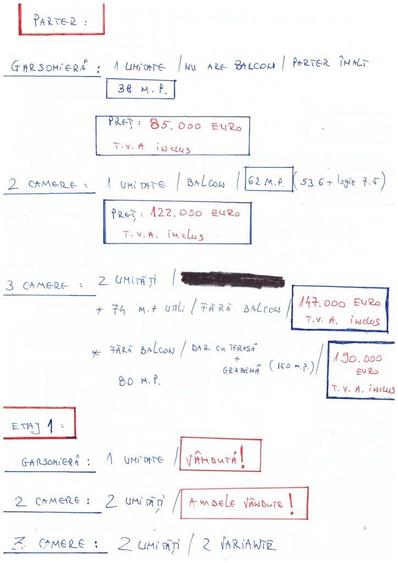 PARTER :
GARSONIERĂ : 1 UNITATE / NU ARE BALCON / PARTER ÎNALT
38 M.P.
PREȚ : 85.000 EURO
T.V.A inclus
2 CAMERE : 1 UNITATE / BALCON / 62 M.P. (53.6 + logie 7.5)
PREȚ : 122.000 EURO
T.V.A. inclus
3 CAMERE : 2 UNITĂȚI /
* 74 M.P UTILI / FĂRĂ BALCON / 147.000 EURO
T.V.A. inclus
* FĂRĂ BALCON / DAR CU TERASĂ + GRĂDINĂ (150 M.P.) / 190.000 EURO
80 M.P. T.V.A inclus
ETAJ 1 :
GARSONIERĂ : 1 UNITATE / VÂNDUTĂ !
2 CAMERE : 2 UNITĂȚI / AMBELE VÂNDUTE !
3 CAMERE : 2 UNITĂȚI / 2 VARIANTE